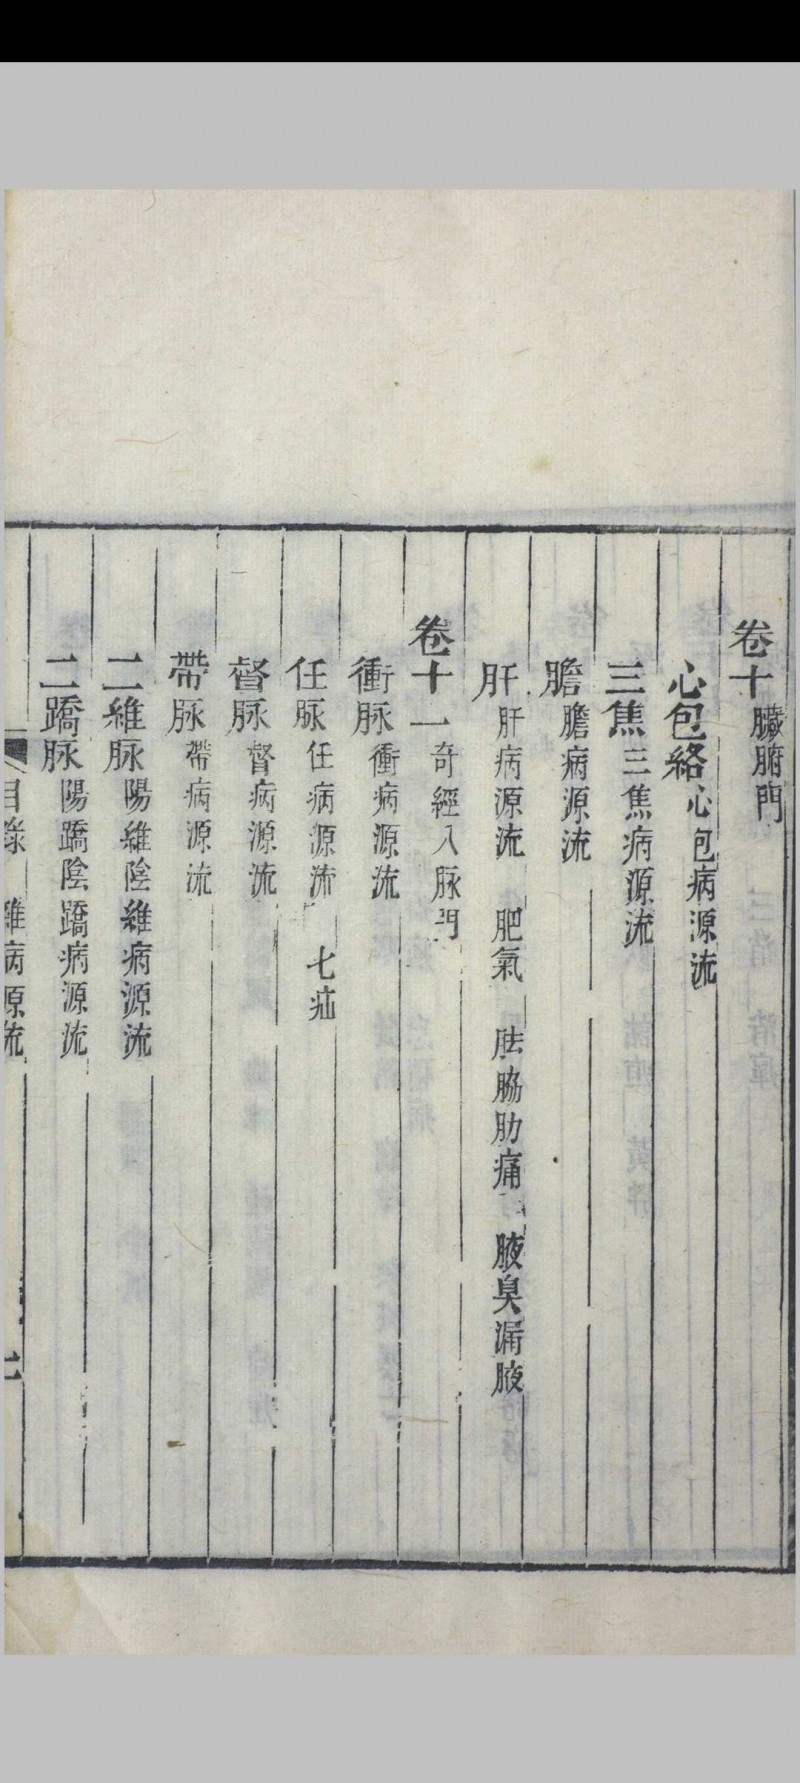 卷十 臟腑門
心包絡 心包病源流
三焦 三焦病源流
膽 膽病源流
肝 肝病源流 肥氣 胠脇肋痛 腋臭漏腋
卷十一 奇經八脉門
衝脉 衝病源流
任脉 任病源流 七疝
督脉 督病源流
帶脉 帶病源流
二維脉 陽維陰維病源流
二蹻脉 陽蹻陰蹻病源流
目錄 雜病源流